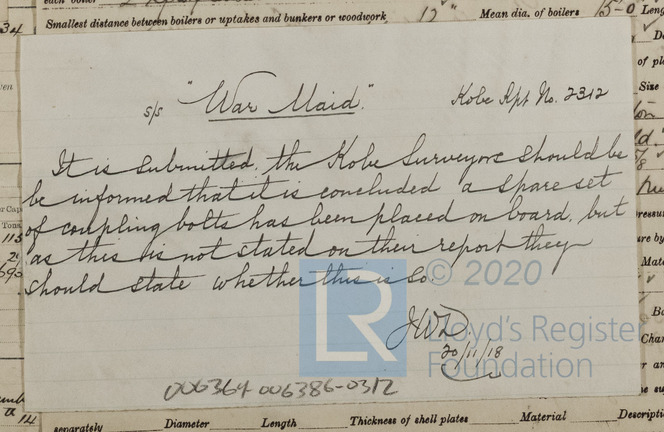 Smallest distance between boilers or uptakes and bunkers or woodwork 12" Mean dia. of boilers 15-0 Leng
s/s "War Maid." Kobe Rpt No. 2312
It is submitted, the Kobe Surveyors should be
be informed that it is concluded a spare set
of coupling bolts has been placed on board, but
as this is not stated on their report they
should state whether this is so.
JWD
20/11/18
LR © 2020
Lloyd's Register
Foundation
006364-006386-0312
separately Diameter Length Thickness of shell plates Material Descripti